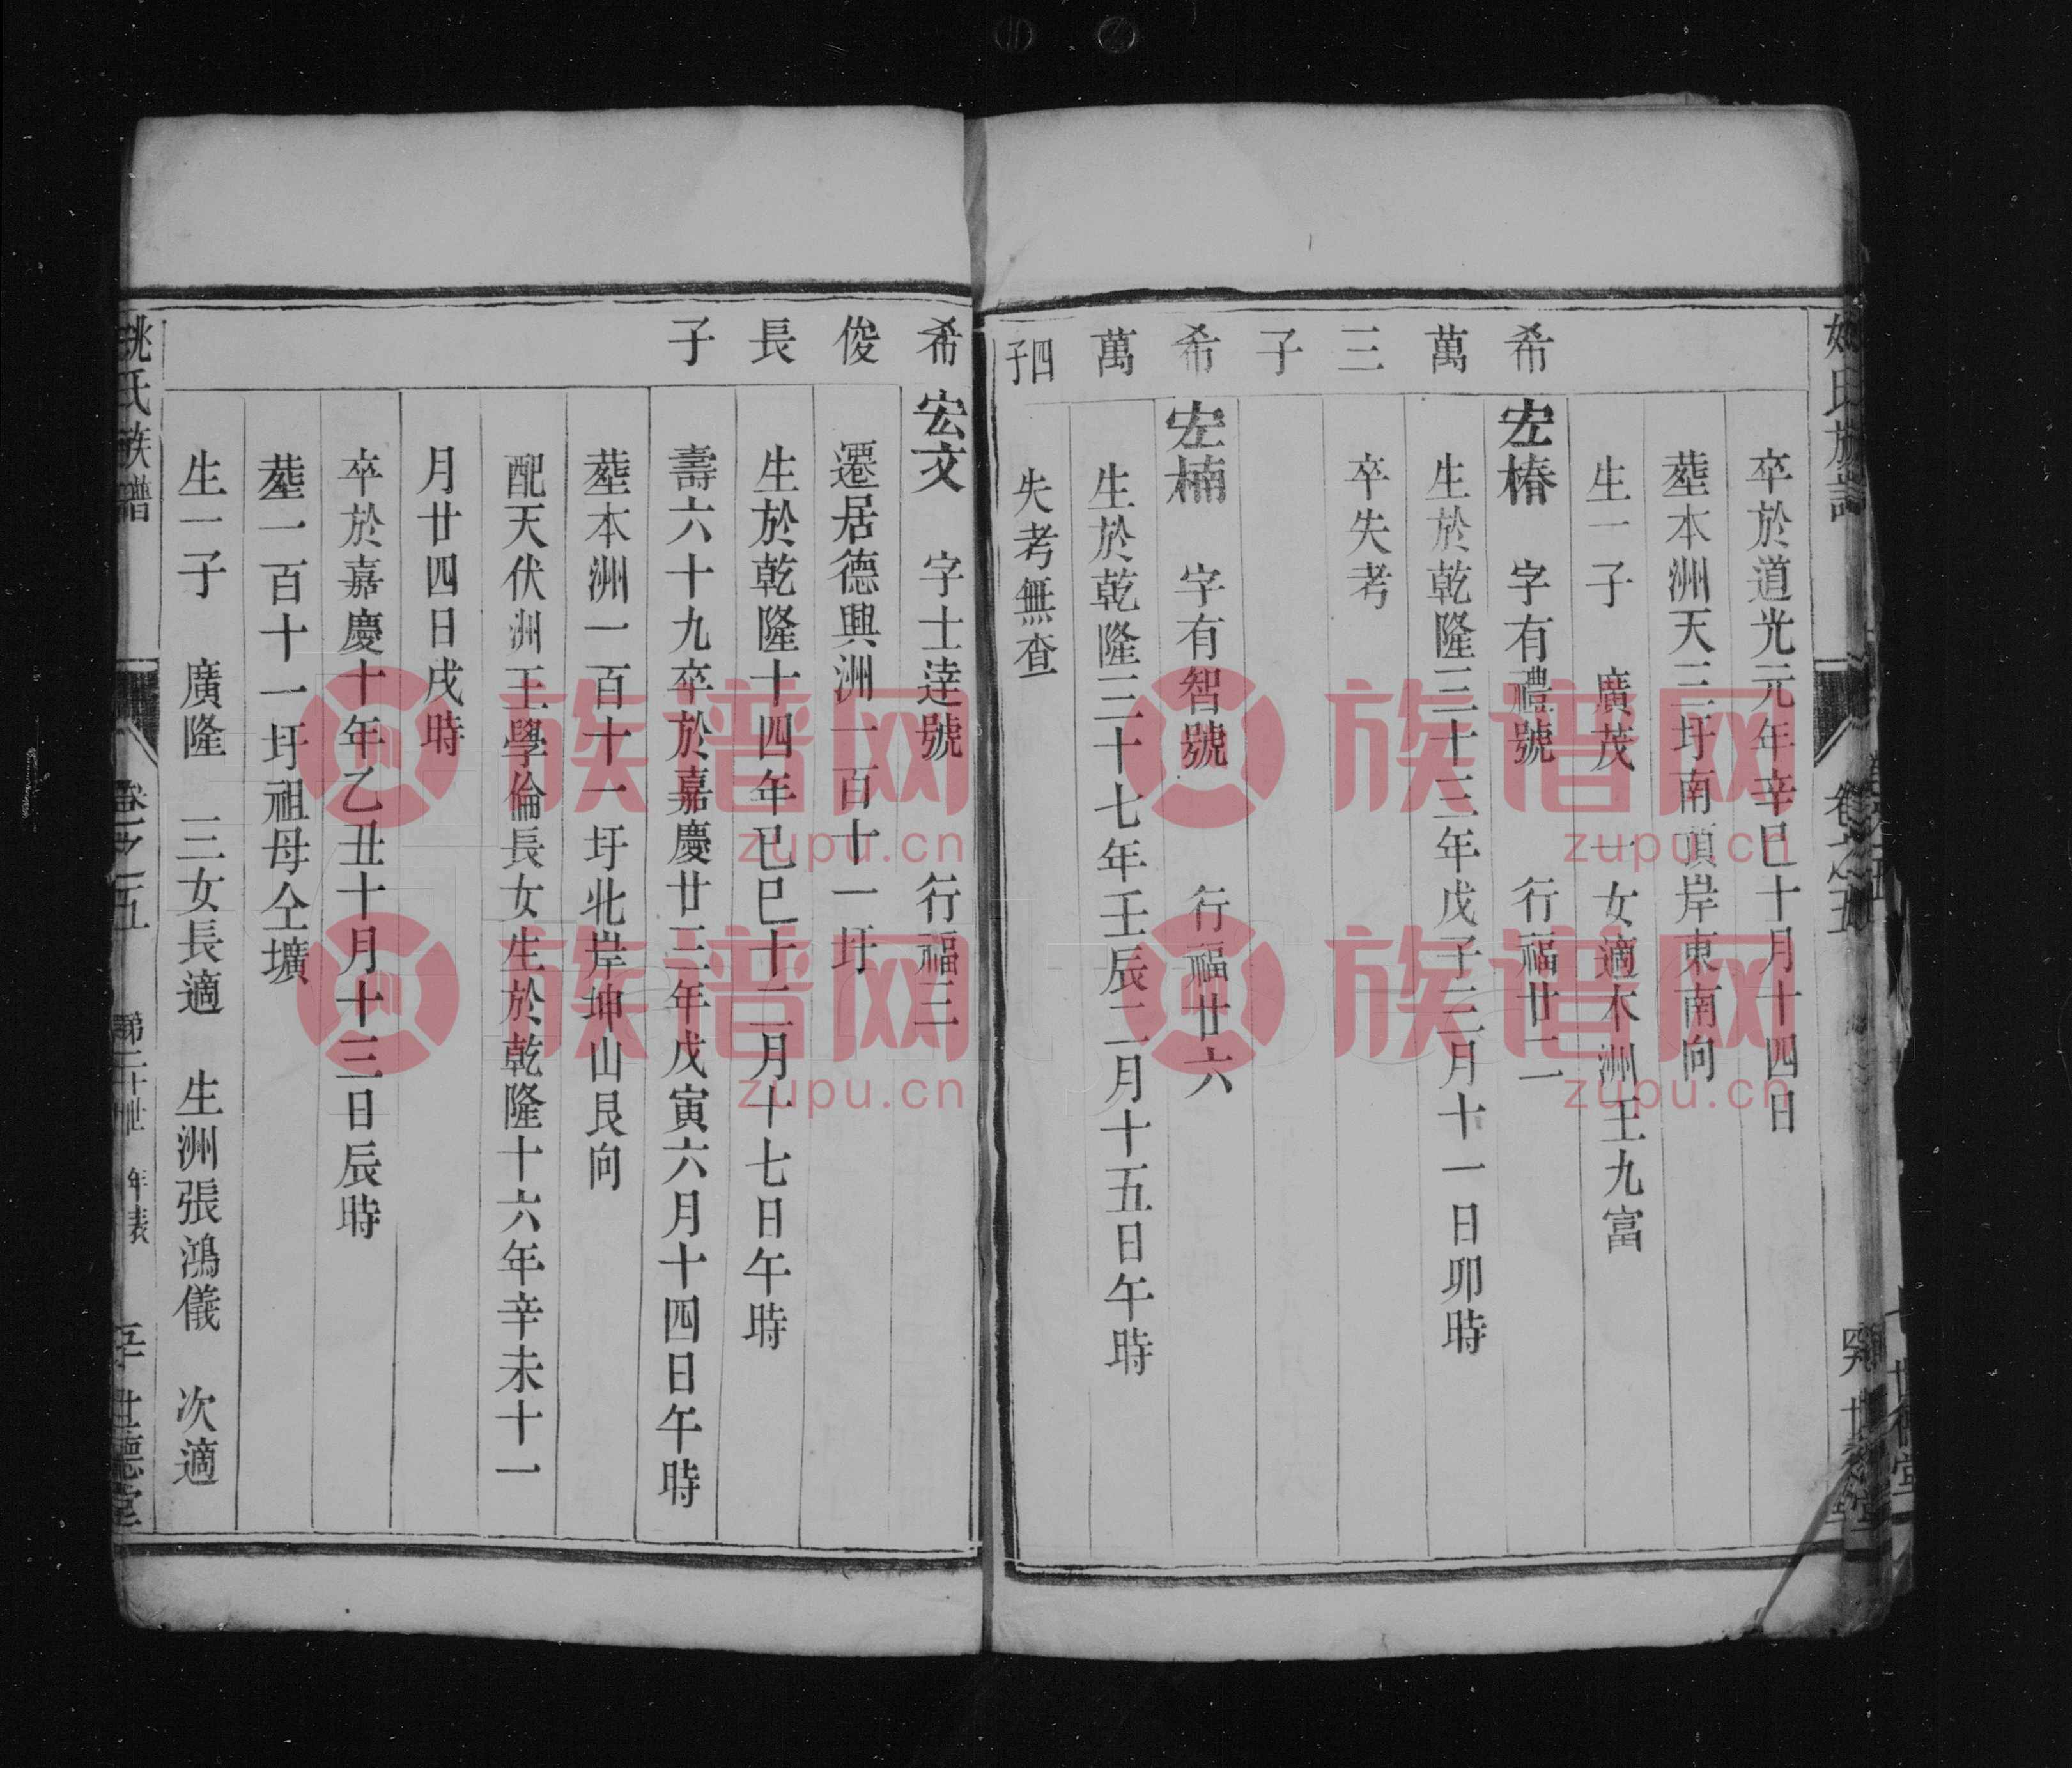 姚氏族譜
卷之五
卒於道光元年辛巳十月十四日
塟本洲天三圩南頂岸東南向
生一子　廣茂　一女適木洲王九富
希萬三子
宏椿　字有禮號　行福廿二
生於乾隆三十三年戊子三月十一日卯時
卒失考
希萬四子
宏楠　字有智號　行福廿六
生於乾隆三十七年壬辰二月十五日午時
失考無查
希俊長子
宏文　字士達號　行福三
遷居德興洲一百十一圩
生於乾隆十四年己巳十二月十七日午時
壽六十九卒於嘉慶廿三年戊寅六月十四日午時
塟本洲一百十一圩北岸坤山艮向
配天伏洲王學倫長女生於乾隆十六年辛未十一
月廿四日戌時
卒於嘉慶十年乙丑十月十三日辰時
塟一百十一圩祖母仝壙
生一子　廣隆　三女長適　生洲張鴻儀　次適
姚氏族譜
卷之五
第二十世
年表
世德堂
族谱网
zupu.cn
族谱网
zupu.cn
族谱网
zupu.cn
族谱网
zupu.cn